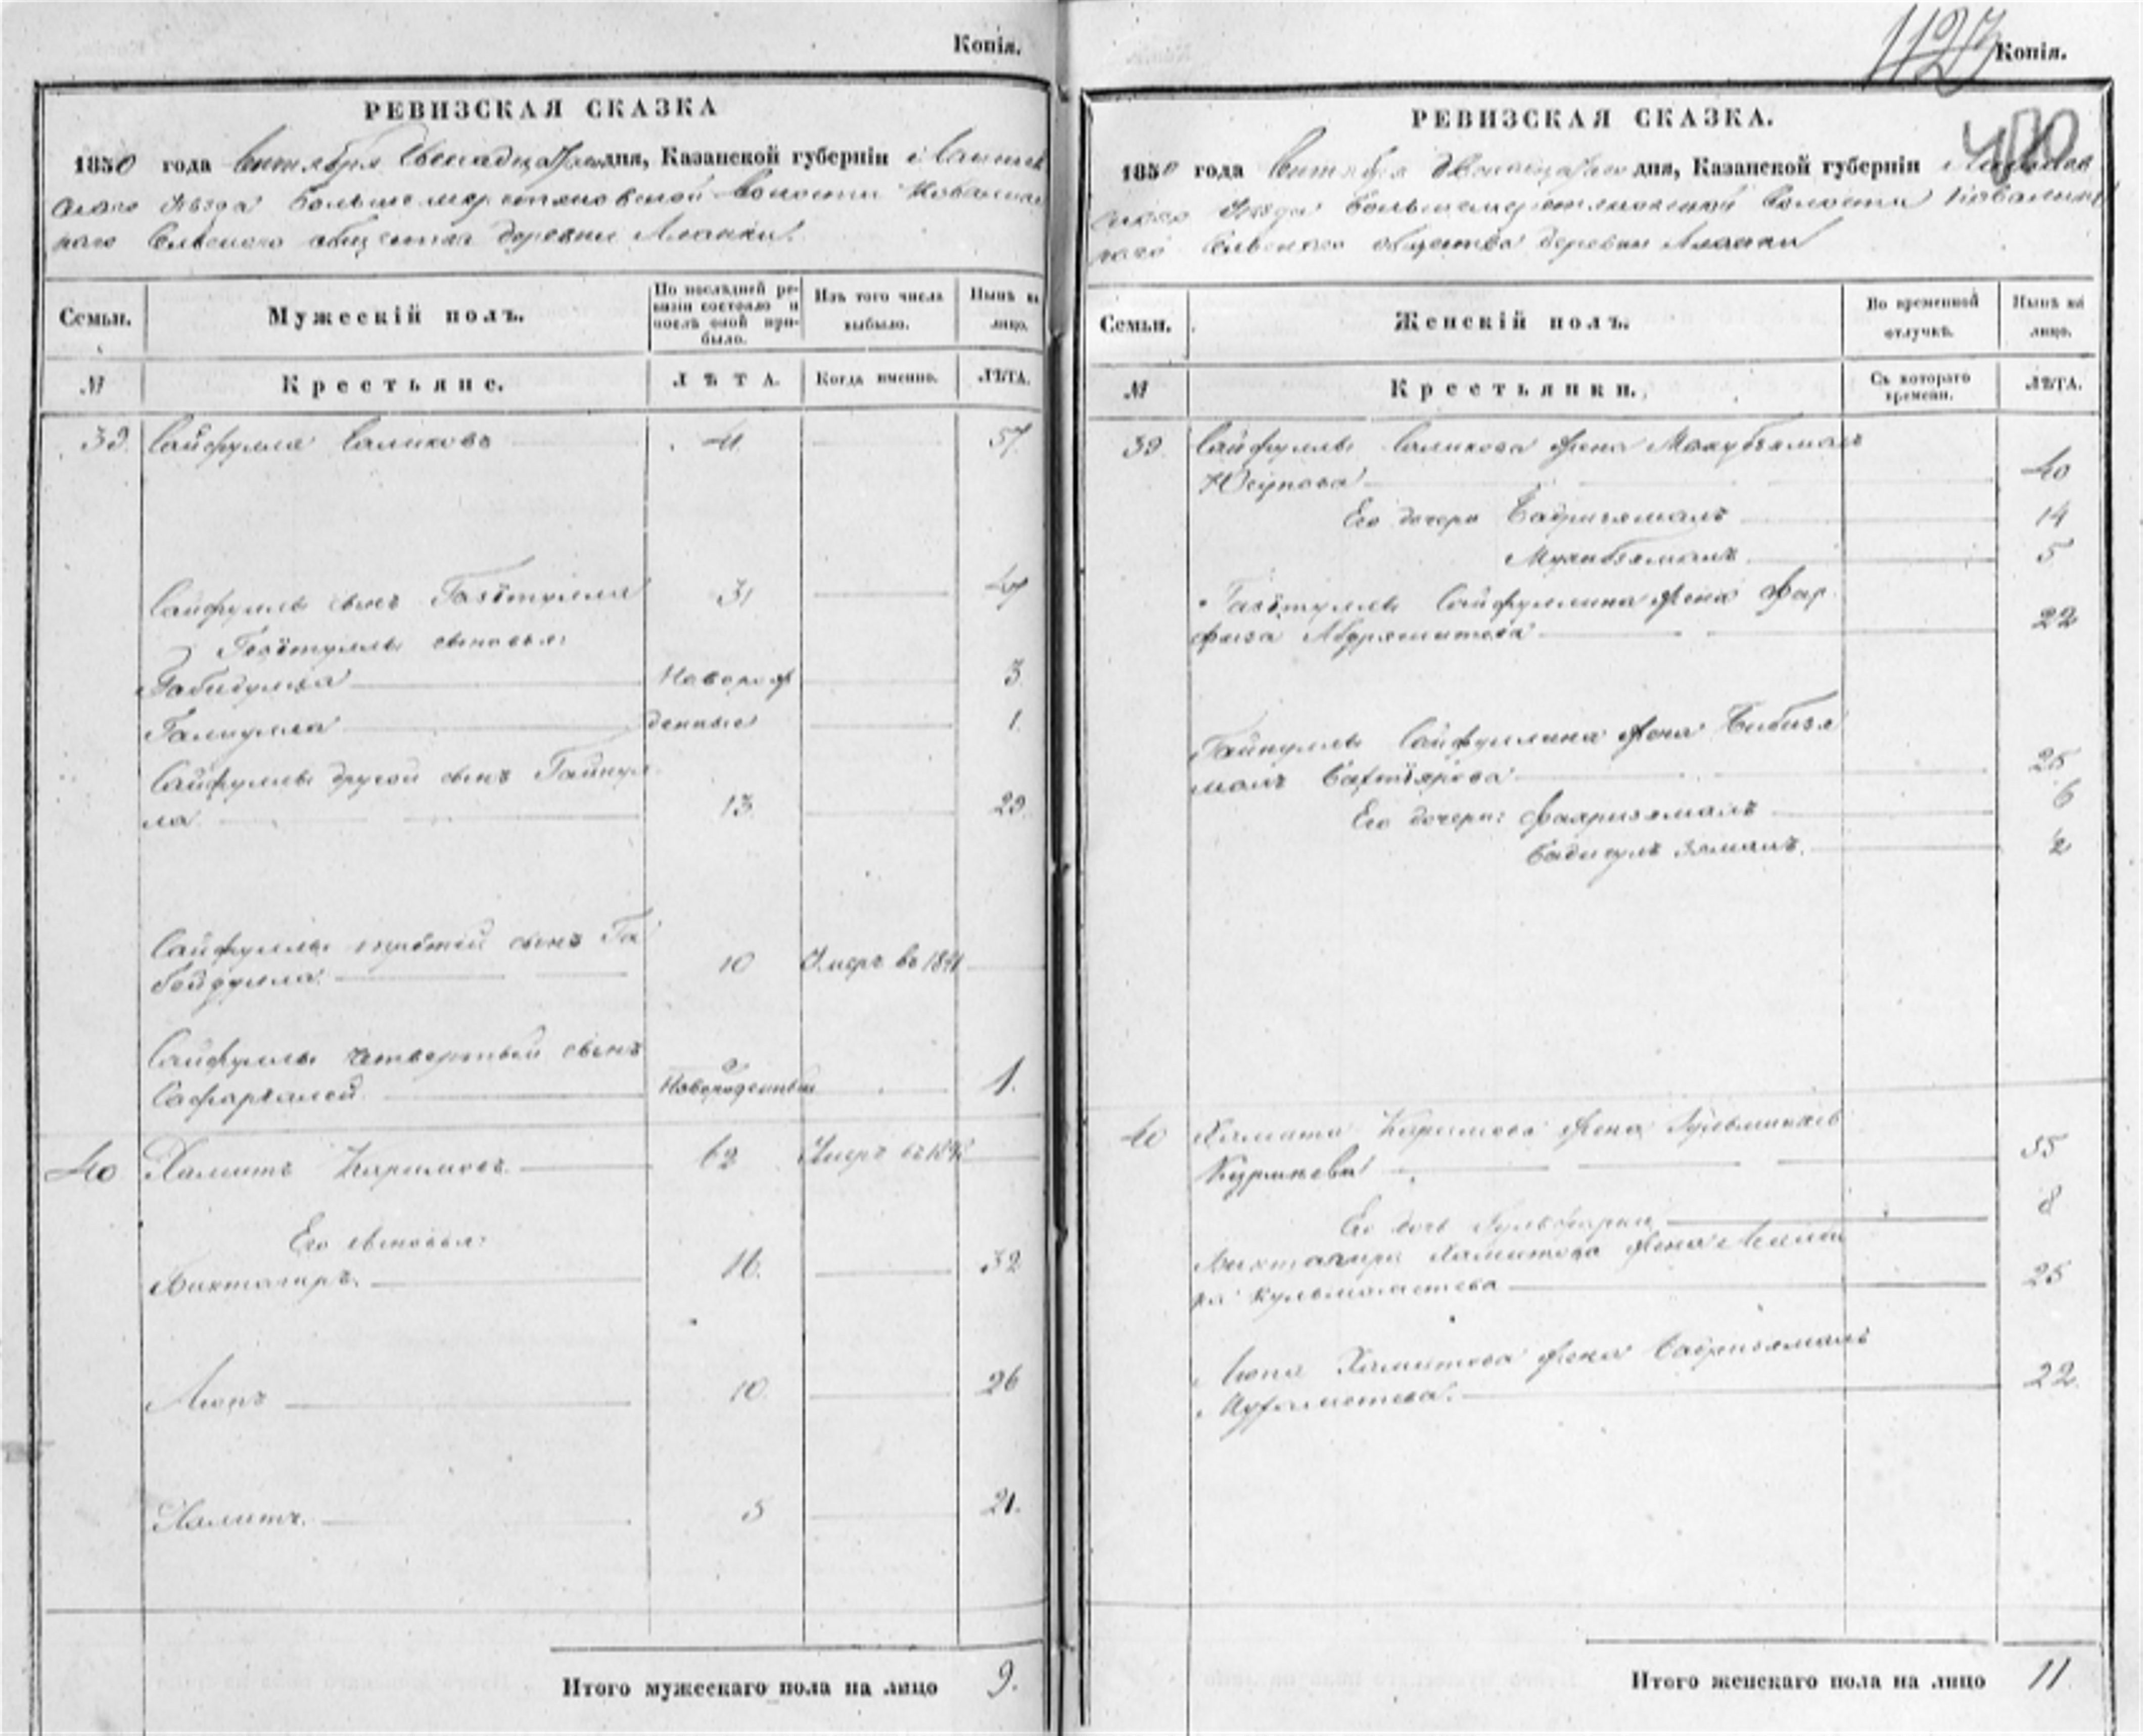 Копія.
РЕВИЗСКАЯ СКАЗКА
1850 года Сентября Двенадцатаго дня, Казанской губерніи Лаишев
скаго Уезда Большемеретяковской волости Ковалин
скаго Сельскаго общества деревни Аланки
Семьи.
Мужескій полъ.
По послѣдней ре-
визіи состояло и
послѣ оной при-
было.
Изъ того числа
выбыло.
Нынѣ на
лицо.
№
Крестьяне.
ЛѢТА.
Когда именно.
ЛѢТА.
39. Сайфулла Саликовъ 41 57.
Сайфуллы сынъ Газѣтулла 31 47
Газѣтуллы сыновья:
Габидулла Новорож 3
Галиулла денные 1.
Сайфуллы другой сынъ Гайнул
ла 13. 29.
Сайфуллы третій сынъ Га
бейдулла. 10 Умеръ въ 1841
Сайфуллы четвертый сынъ
Сафаргалей. Новорожденный 1.
40 Хамитъ Каримовъ. 62 Умеръ въ
Его сыновья:
Биктагиръ. 16. 32
Аюпъ 10. 26
Халитъ. 5 21.
Итого мужескаго пола на лицо 9.
1127
Копія.
400
РЕВИЗСКАЯ СКАЗКА.
1850 года Сентября Двенадцатаго дня, Казанской губерніи Лаишев
скаго Уезда Большемеретяковской Волости Ковалин
скаго Сельскаго общества деревни Аланки
Семьи.
Женскій полъ.
Во временной
отлучкѣ.
Нынѣ на
лицо.
№
Крестьянки.
Съ котораго
времени.
ЛѢТА.
39. Сайфуллы Саликова жена Махубзямалъ
Юсупова 40
Его дочери Бадризямалъ 14
Мухибзямалъ 5
Газѣтуллы Сайфуллина жена Фар
хиза Абдряшитова 22
Гайнуллы Сайфуллина жена Бибизя
малъ Бахтіярова 25
Его дочери: Фахризямалъ 6
Бадигулъ зямалъ. 2
40 Хамита Каримова жена
55
Его дочь 8
Биктагира Хамитова жена
25
Аюпа Хамитова жена Бадризямалъ
22.
Итого женскаго пола на лицо 11